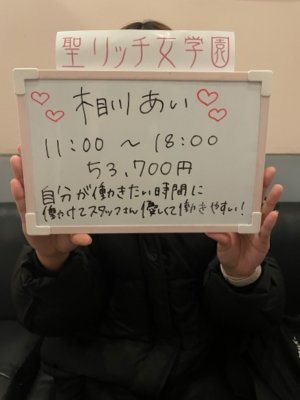 聖リッチ女学園
相川あい
11:00 ～ 18:00
53,700円
自分が働きたい時間に
働やけてスタッフさん優しくて働きやすい!